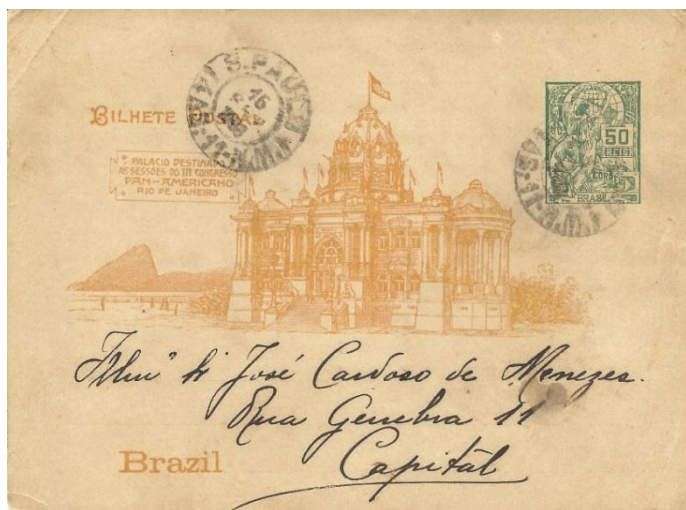 BILHETE POSTAL
PALACIO DESTINADO
ÁS SESSÕES DO III CONGRESSO
PAN-AMERICANO
RIO DE JANEIRO
S. PAULO
16
50
REIS
CORREIO
BRASIL
Illmº Sr José Cardoso de Menezes.
Rua Genebra 11
Capitál
Brazil